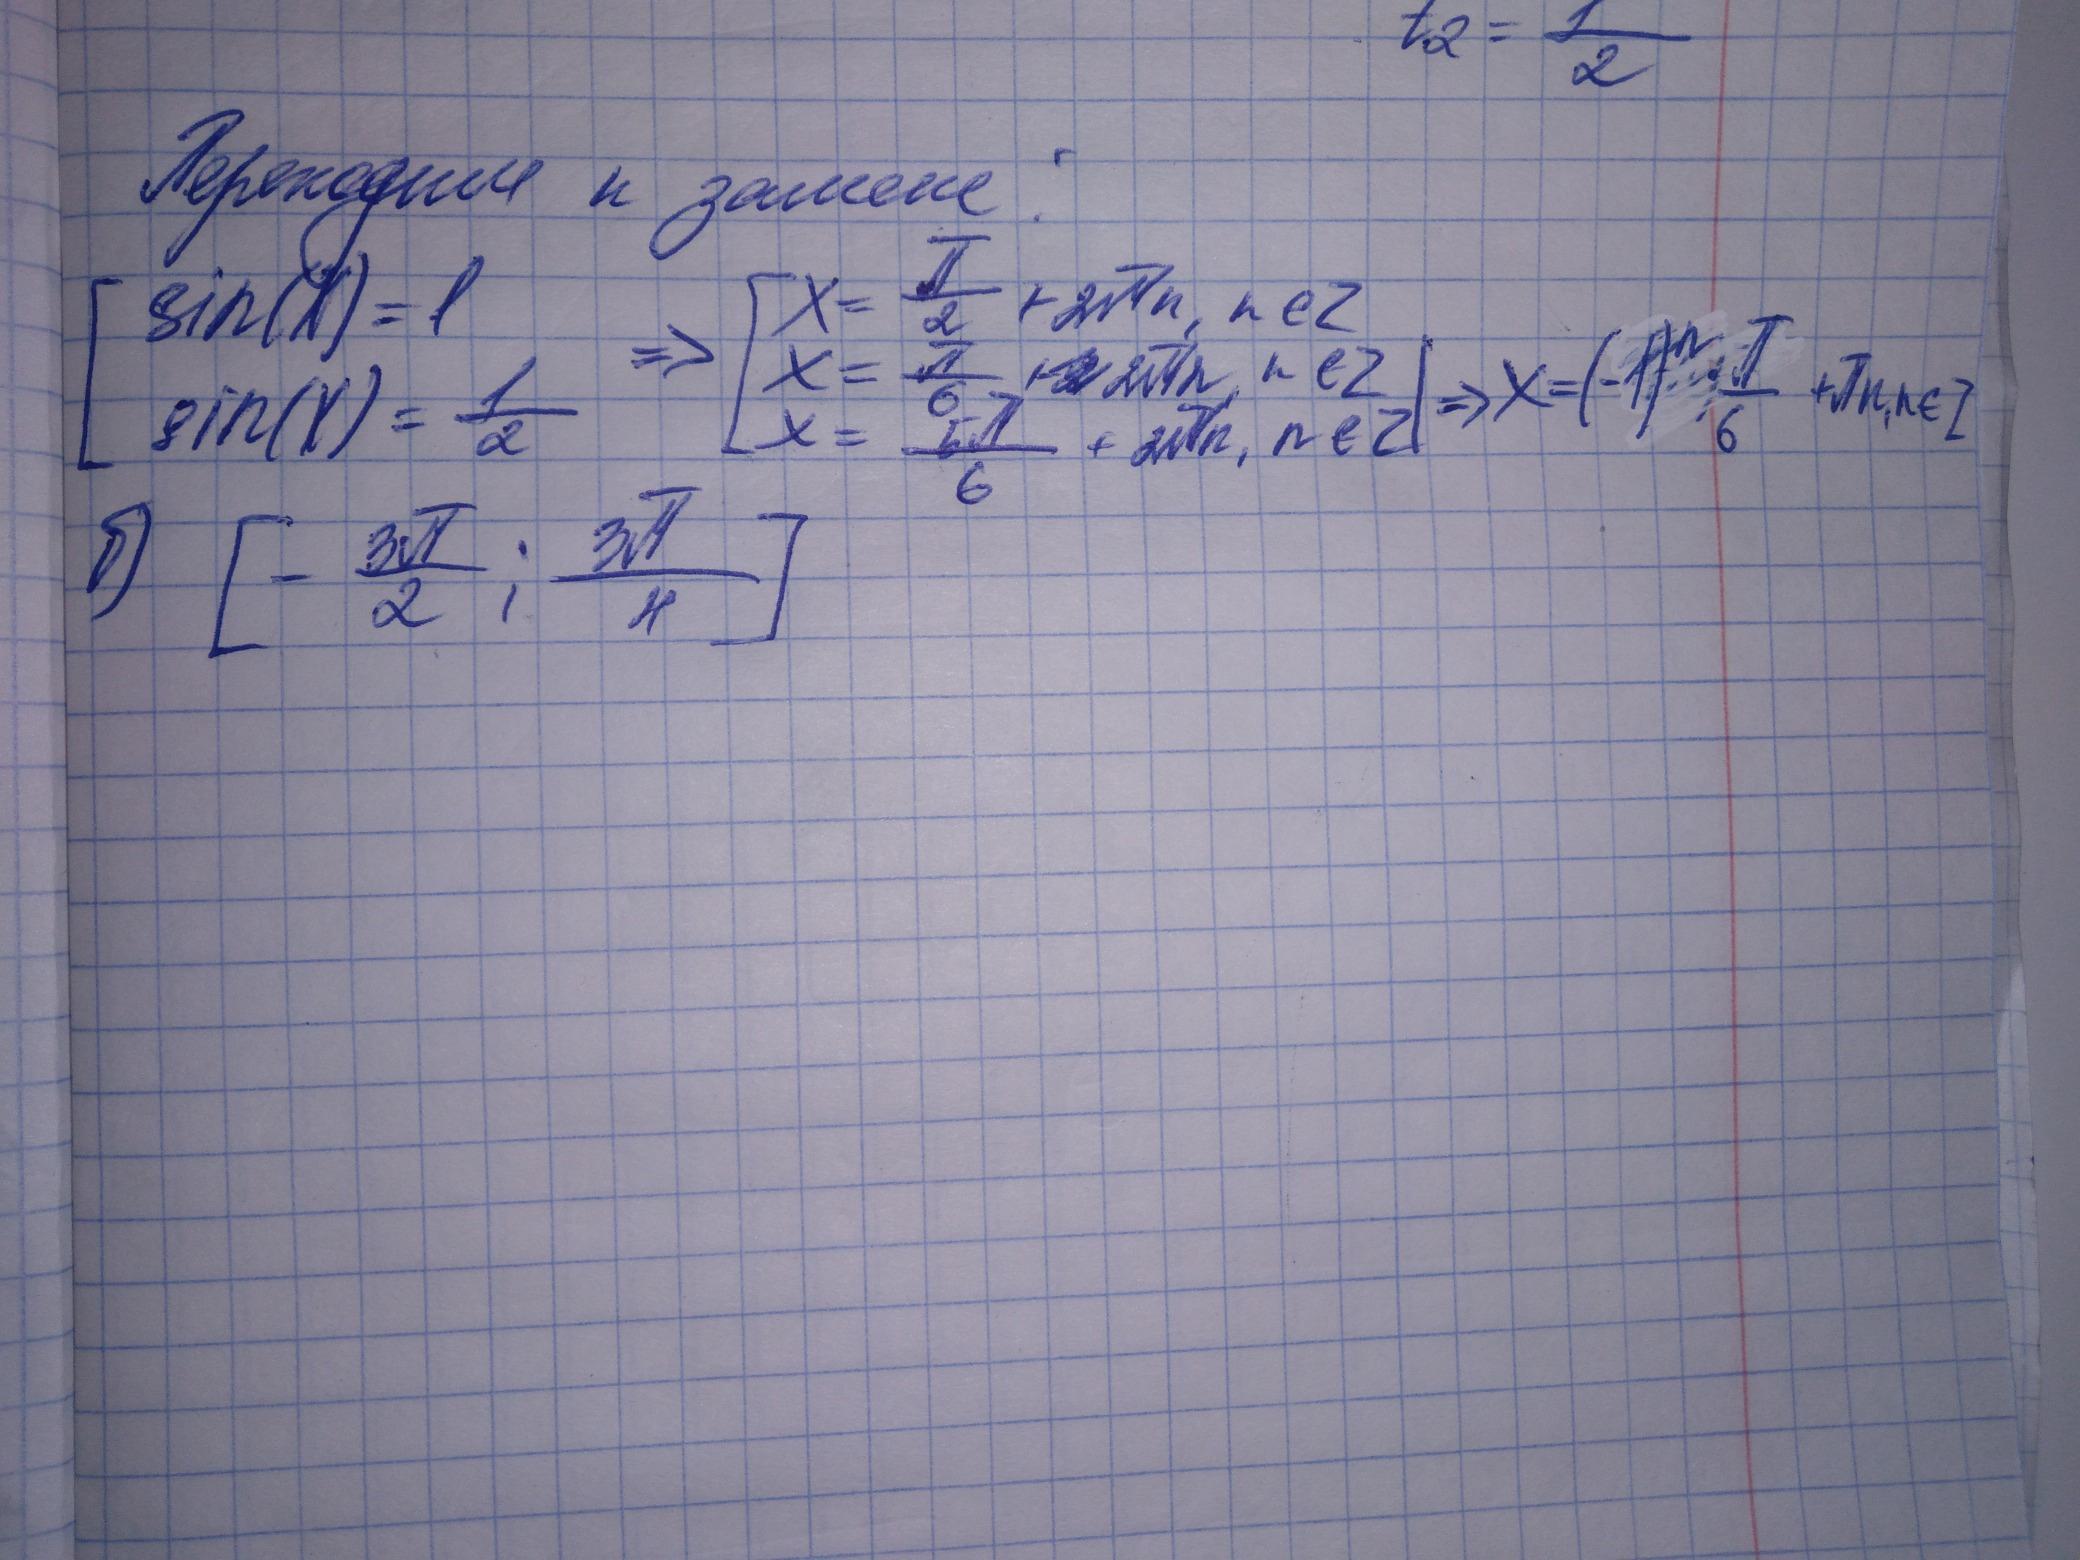 t₂ = 1/2
Переходим к замене:
[ sin(x) = 1 => [ x = π/2 + 2πn, n ∈ Z
sin(x) = 1/2 x = π/6 + 2πn, n ∈ Z
x = 5π/6 + 2πn, n ∈ Z | => x = (-1)ⁿ · π/6 + πn, n ∈ Z
б) [ - 3π/2 ; 3π/4 ]